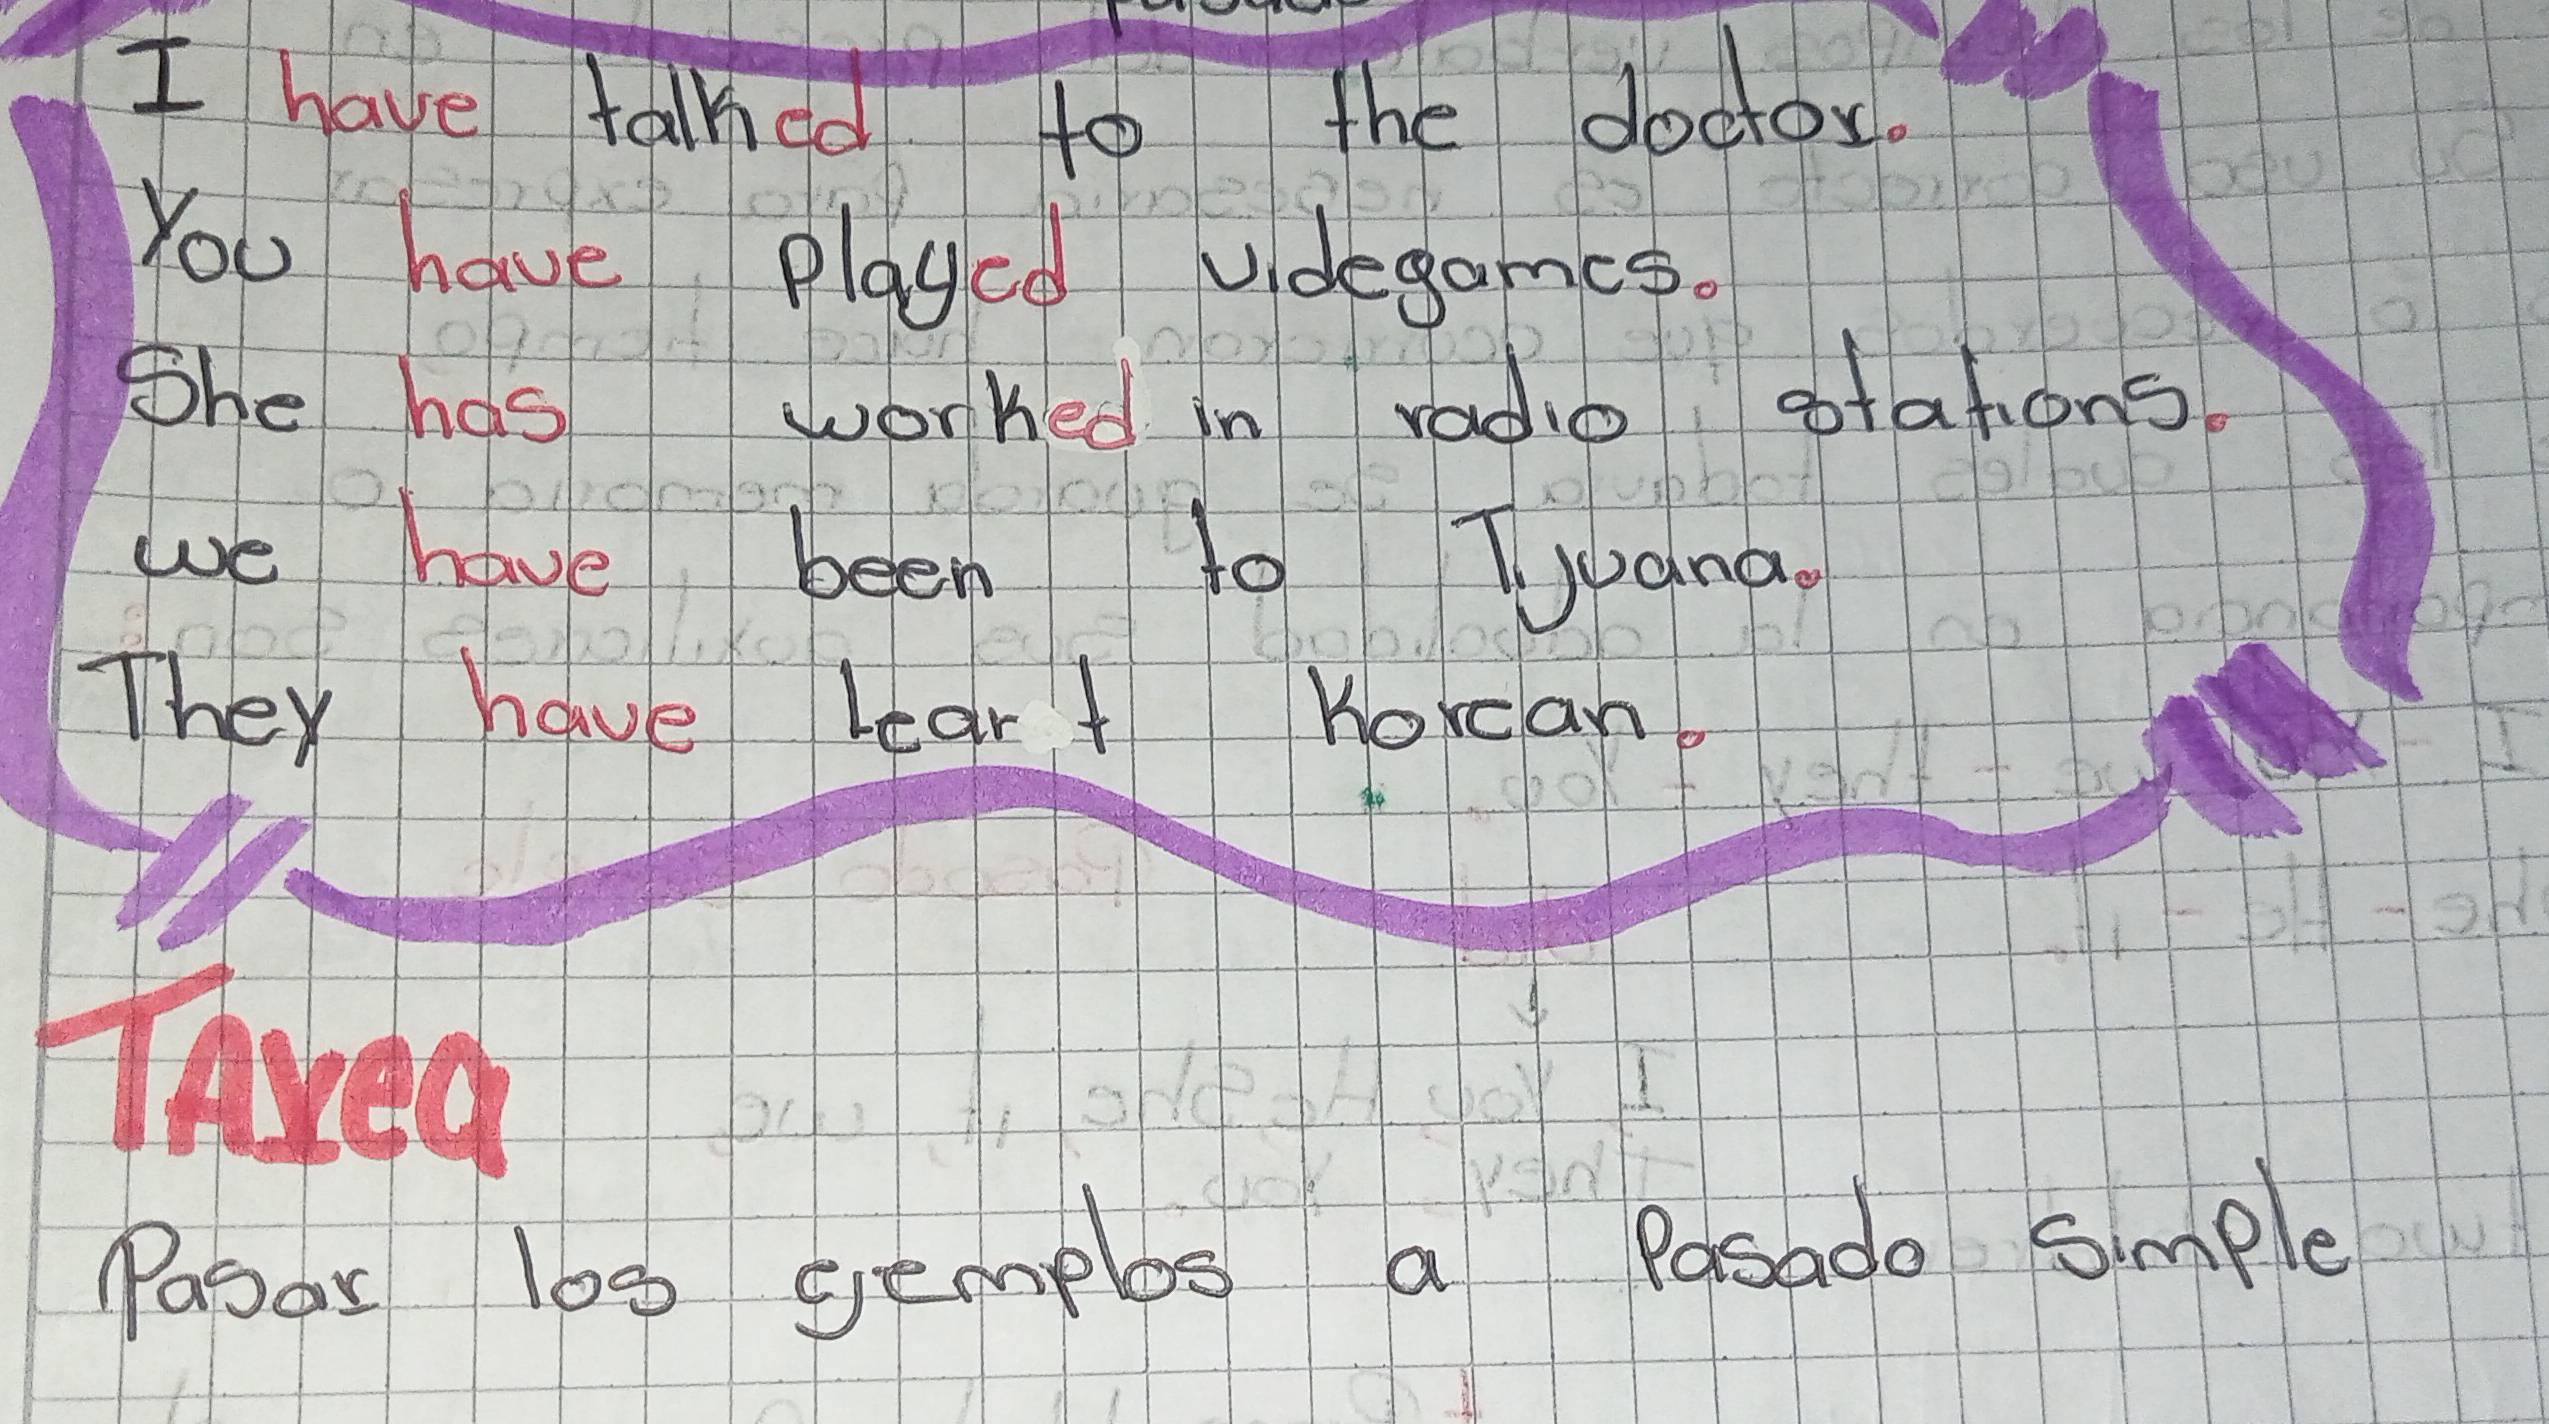 I have talked to the doctor.
You have played videgames.
She has worked in radio stations.
we have been to Tijuana.
They have Lear t Korean.
TAREA
Pasar los ejemplos a Pasado simple